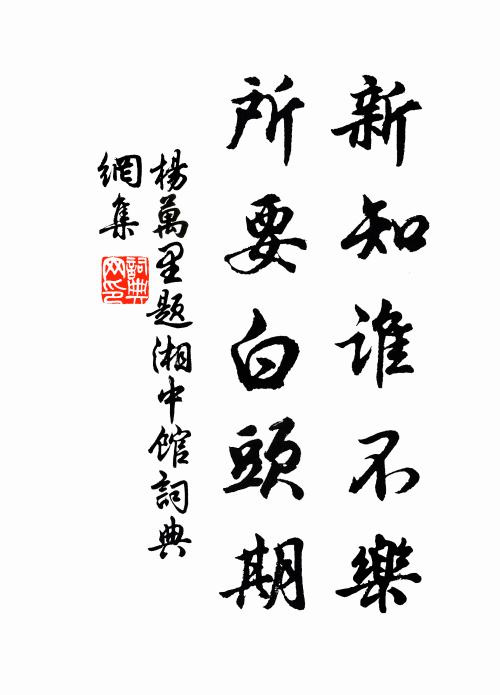 新知谁不樂
所要白頭期
楊萬里题湘中馆詞典
網集
詞典
网印